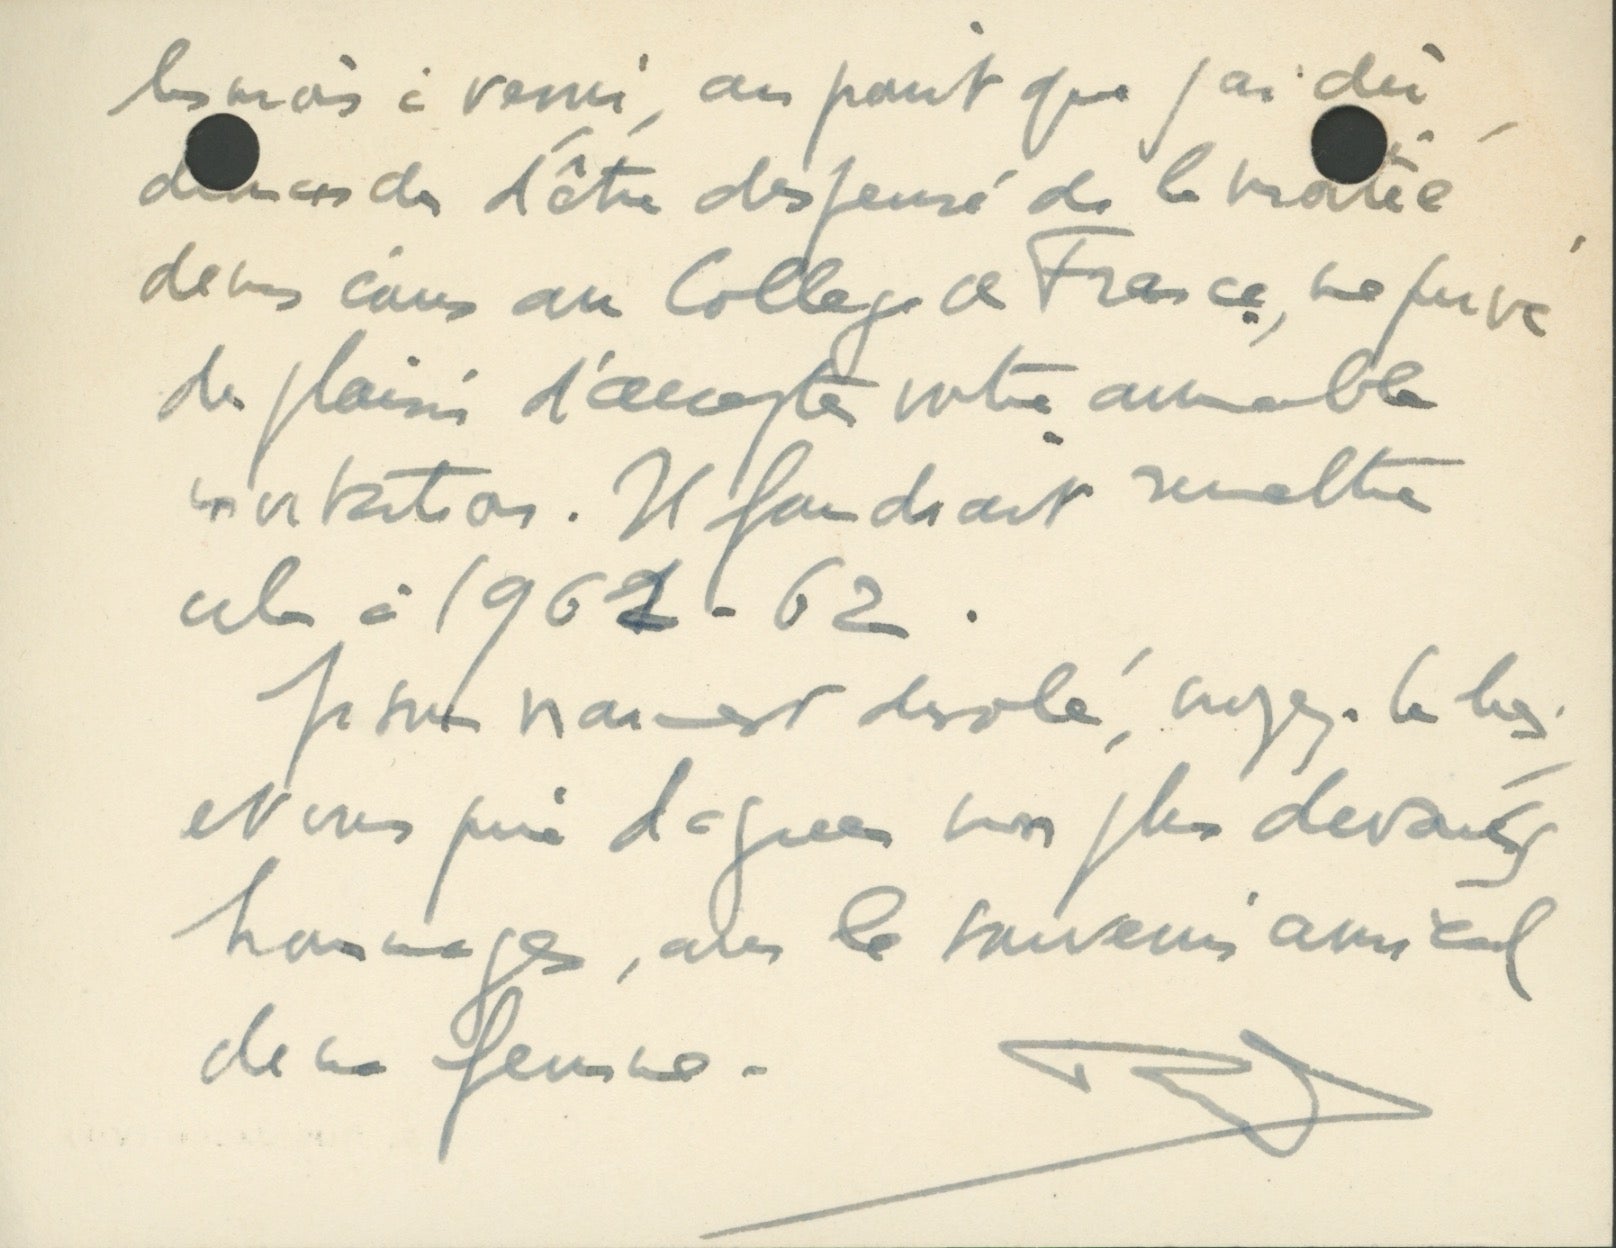 les mois à venir, au point que j'ai dû
demander d'être dispensé de la moitié
de mes cours au Collège de France, me prive
du plaisir d'accepter votre aimable
invitation. Il faudrait remettre
cela à 1962-62.
Je suis vraiment désolé, croyez-le bien.
et vous prie d'agréer mes plus dévoués
hommages, avec le souvenir amical
de ma femme.